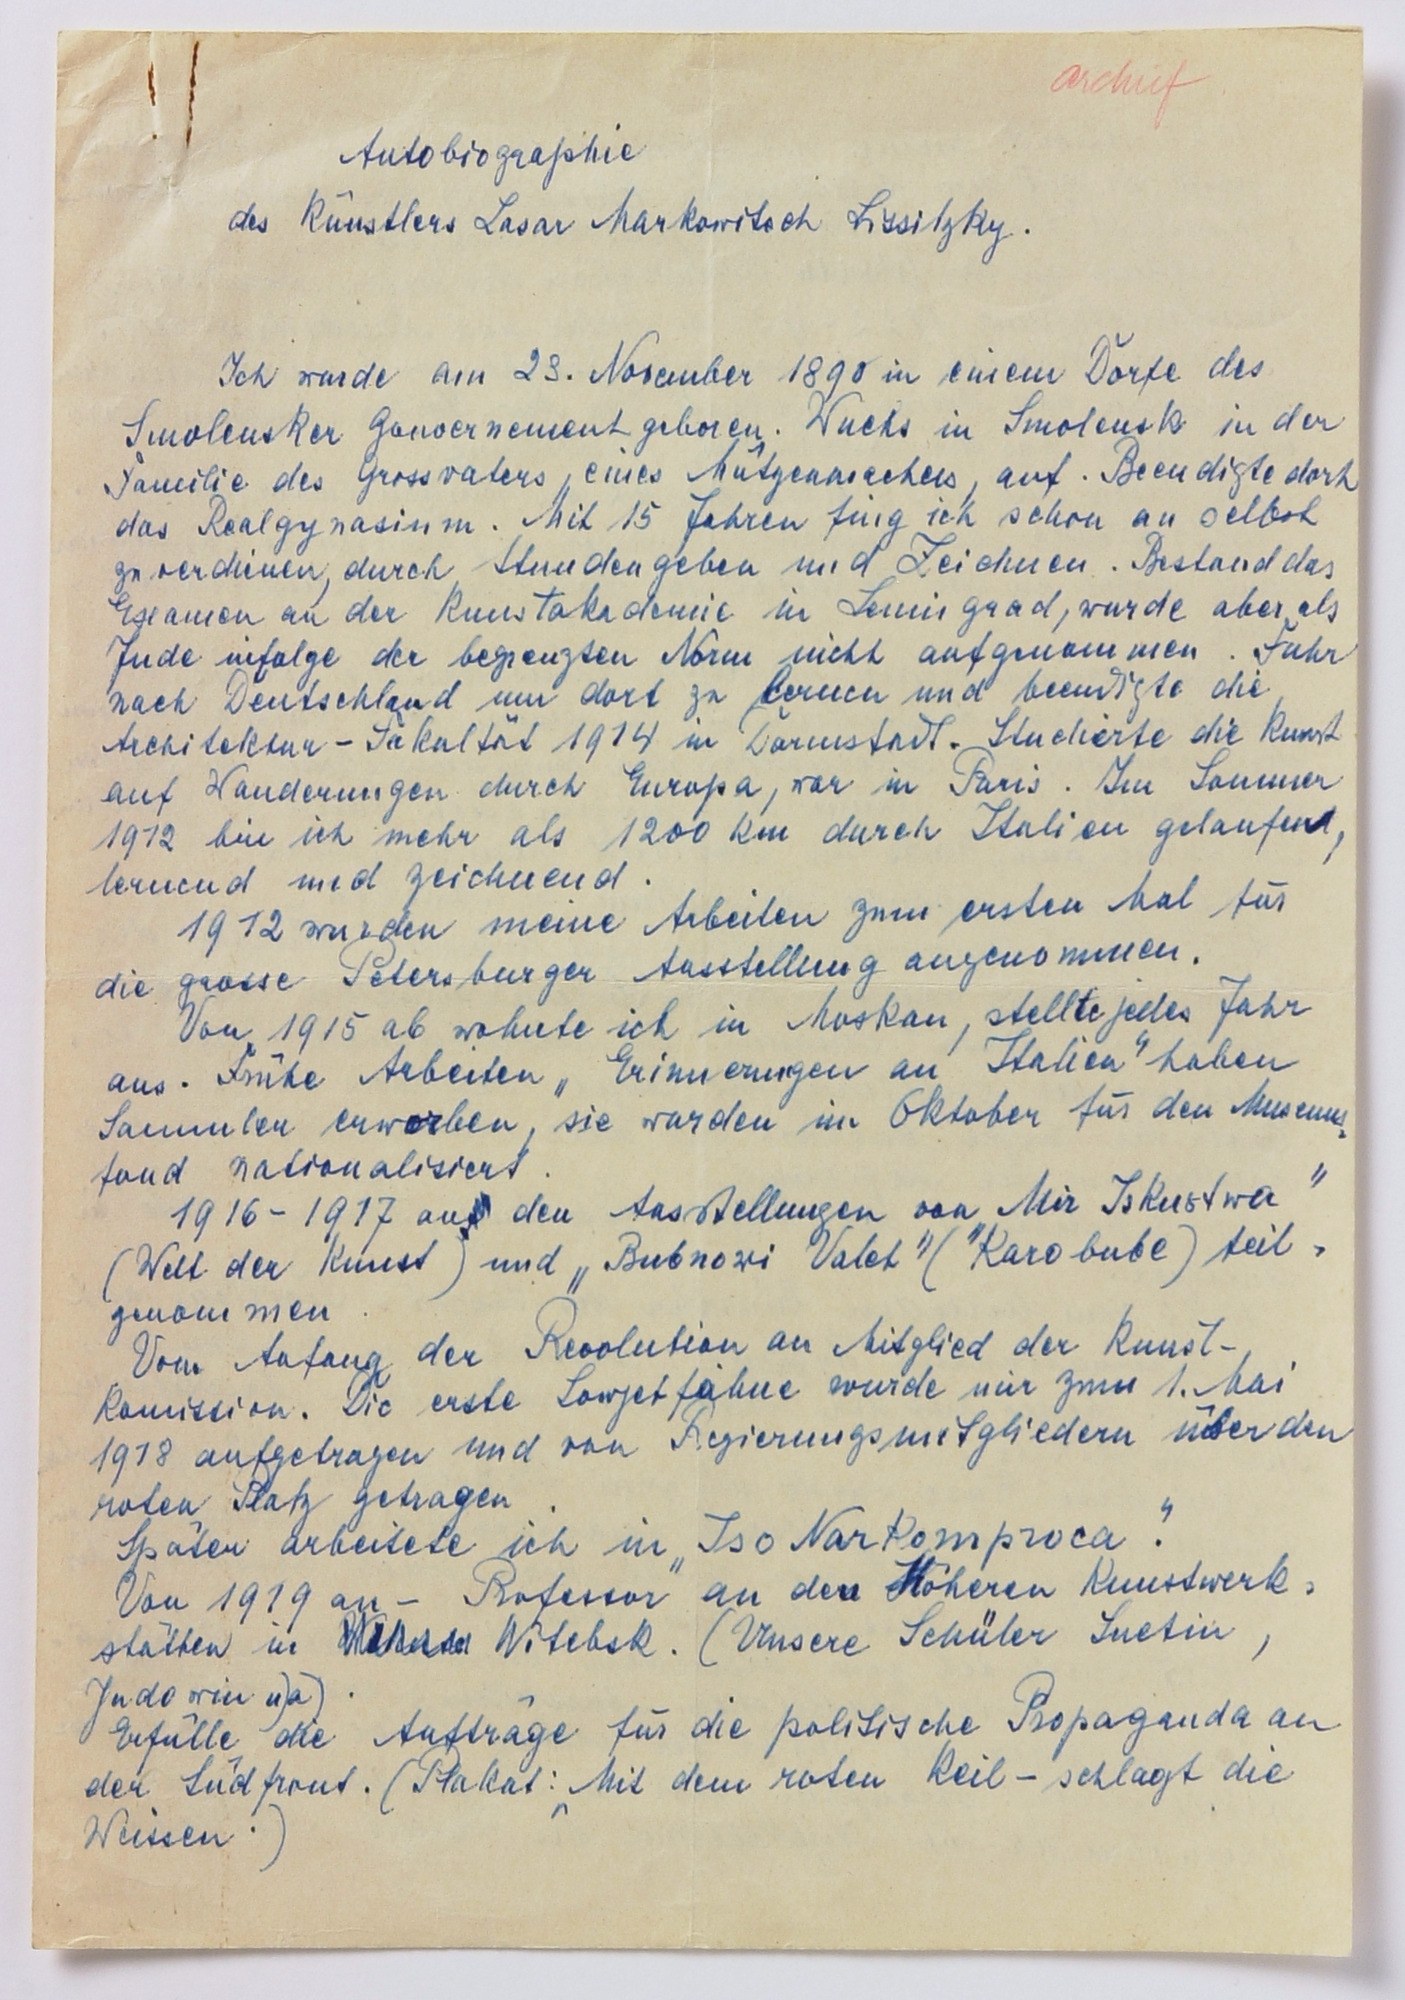 archief
Autobiographie
des Künstlers Lasar Markowitsch Lissitzky.
Ich wurde am 23. November 1890 in einem Dorfe des
Smolensker Gouvernement geboren. Wuchs in Smolensk in der
Familie des Grossvaters, eines Mützenmachers, auf. Beendigte dort
das Realgynasium. Mit 15 Jahren fing ich schon an selbst
zu verdienen, durch Stundengeben und Zeichnen. Bestand das
Examen an der Kunstakademie in Leningrad, wurde aber als
Jude infolge der begrenzten Norm nicht aufgenommen. Fuhr
nach Deutschland um dort zu lernen und beendigte die
Architektur-Fakultät 1914 in Darmstadt. Studierte die Kunst
auf Wanderungen durch Europa, war in Paris. Im Sommer
1912 bin ich mehr als 1200 km durch Italien gelaufen,
lernend und zeichnend.
1912 wurden meine Arbeiten zum ersten Mal für
die grosse Petersburger Ausstellung angenommen.
Von 1915 ab wohnte ich in Moskau, stellte jedes Jahr
aus. Frühe Arbeiten „Erinnerungen an Italien" haben
Sammler erworben, sie wurden im Oktober für den Museums-
fond nationalisiert.
1916-1917 auf den Ausstellungen von Mir Iskustwa"
(Welt der Kunst) und „Bubnowi Valet" ("Karobube) teil-
genommen.
Vom Anfang der Revolution an Mitglied der Kunst-
Komission. Die erste Sowjetfahne wurde mir zum 1. Mai
1918 aufgetragen und von Regierungsmitgliedern über den
roten Platz getragen.
Später arbeitete ich in „Iso Narkomproca".
Von 1919 an - Professor an den Höheren Kunstwerk-
stätten in Witebsk. (Unsere Schüler Suetin,
Judowin u)a).
Erfülle die Aufträge für die politische Propaganda an
der Südfront. (Plakat: „Mit dem roten Keil - schlagt die
Weissen.)